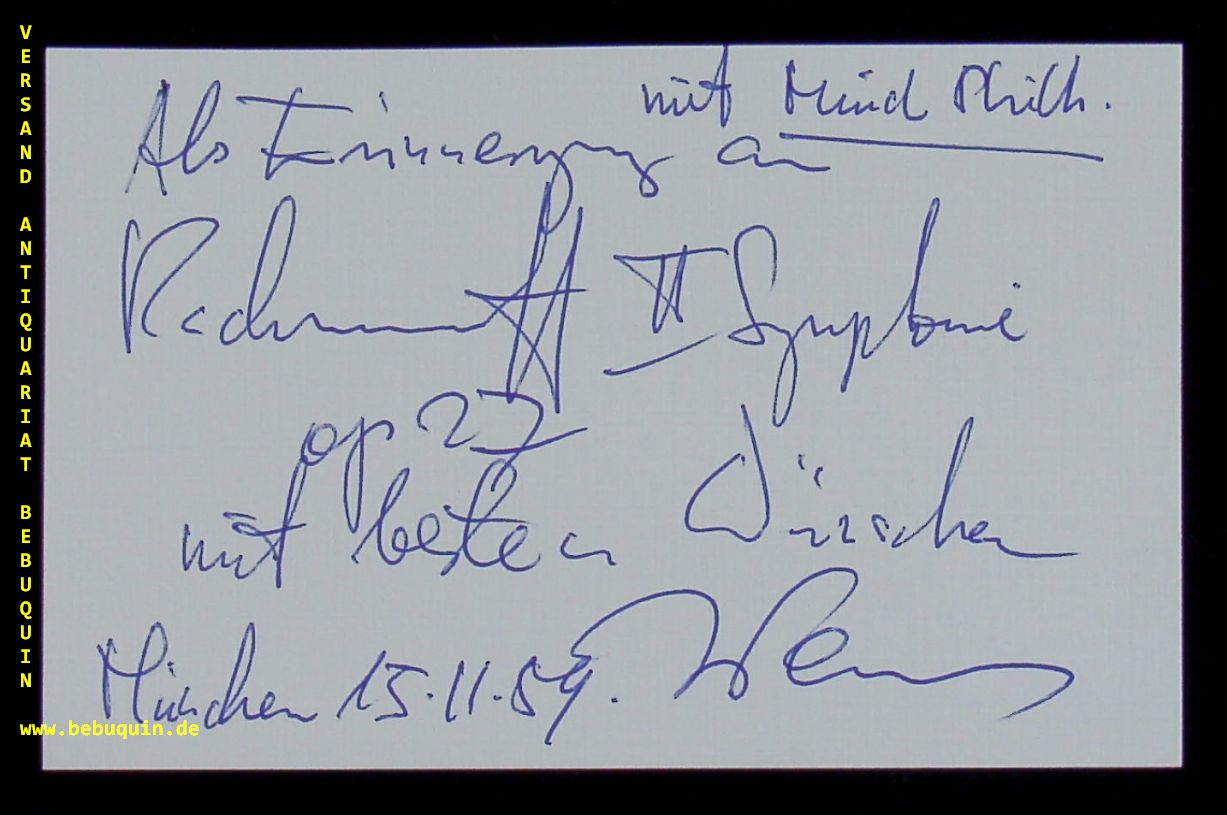 VERSAND ANTIQUARIAT BEBUQUIN
mit Münch Philh.
Als Erinnerung an
Rachmaninoff II Symphonie
op 27
mit besten Wünschen
München 15.11.59.
www.bebuquin.de